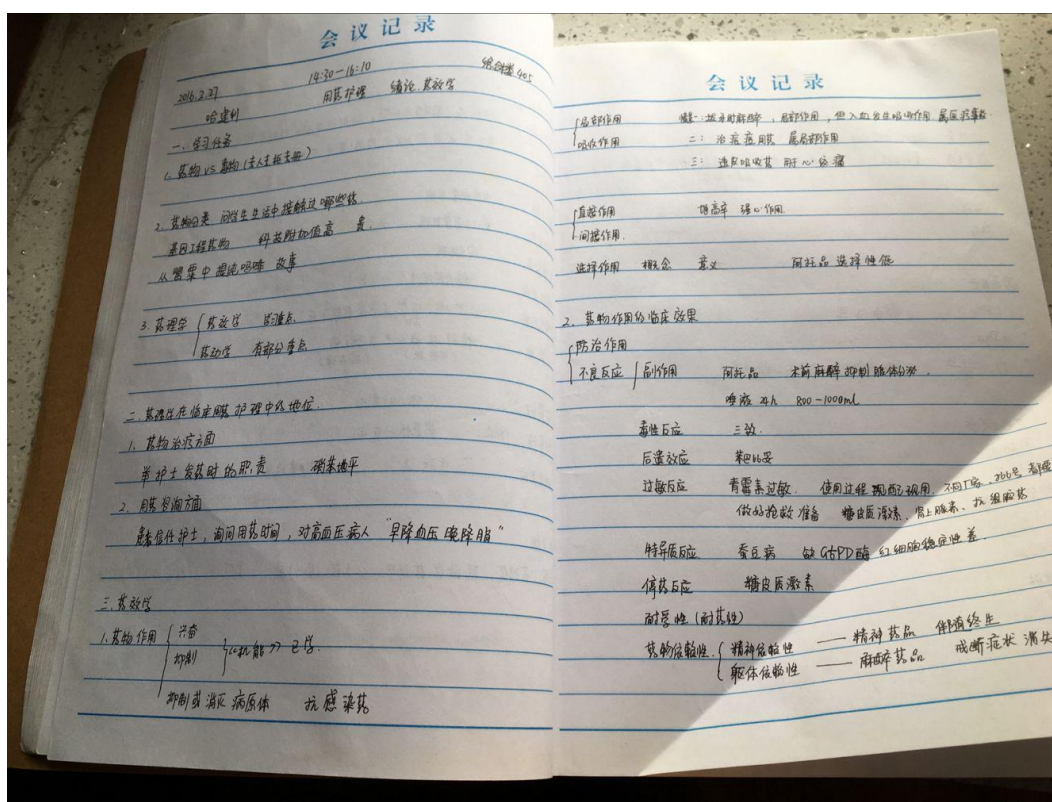 会议记录
2016.2.27 14:30-16:10 综合楼405
哈建利 用药护理 绪论.药效学
一、学习任务
1. 药物 vs 毒物
2. 药物分类 问学生生活中接触过哪些药.
基因工程药物 科技附加值高 贵.
从罂粟中提纯吗啡 故事
3. 药理学 药效学 皆重点.
药动学 有部分重点
二.药理学在临床用药护理中的地位.
1. 药物治疗方面
举护士发药时的职责 硝苯地平
2. 用药咨询方面
患者信任护士,询问用药时间,对高血压病人 "早降血压 晚降脂"
三.药效学
1.药物作用 兴奋
抑制 《机能》已学.
抑制或消灭病原体 抗感染药
会议记录
局部作用 一:拔牙时麻醉,局部作用,但入血发生吸收作用,属医疗事故
吸收作用 二:治痘痘用药 属局部作用
三:透皮吸收药 治心绞痛
直接作用 地高辛 强心作用.
间接作用.
选择作用 概念 意义 阿托品 选择性低
2. 药物作用的临床效果
防治作用
不良反应 副作用 阿托品 术前麻醉 抑制腺体分泌.
唾液 24h 800-1000ml
毒性反应 三致.
后遗效应 苯巴比妥
过敏反应 青霉素过敏. 使用过程 现配现用. 不同厂家、批号 都要
做好抢救准备 糖皮质激素、肾上腺素、抗组胺药
特异质反应 蚕豆病 缺G6PD酶 红细胞稳定性差.
停药反应 糖皮质激素
耐受性(耐药性)
药物依赖性. 精神依赖性 —— 精神药品 伴随终生
躯体依赖性 —— 麻醉药品 戒断症状 消失